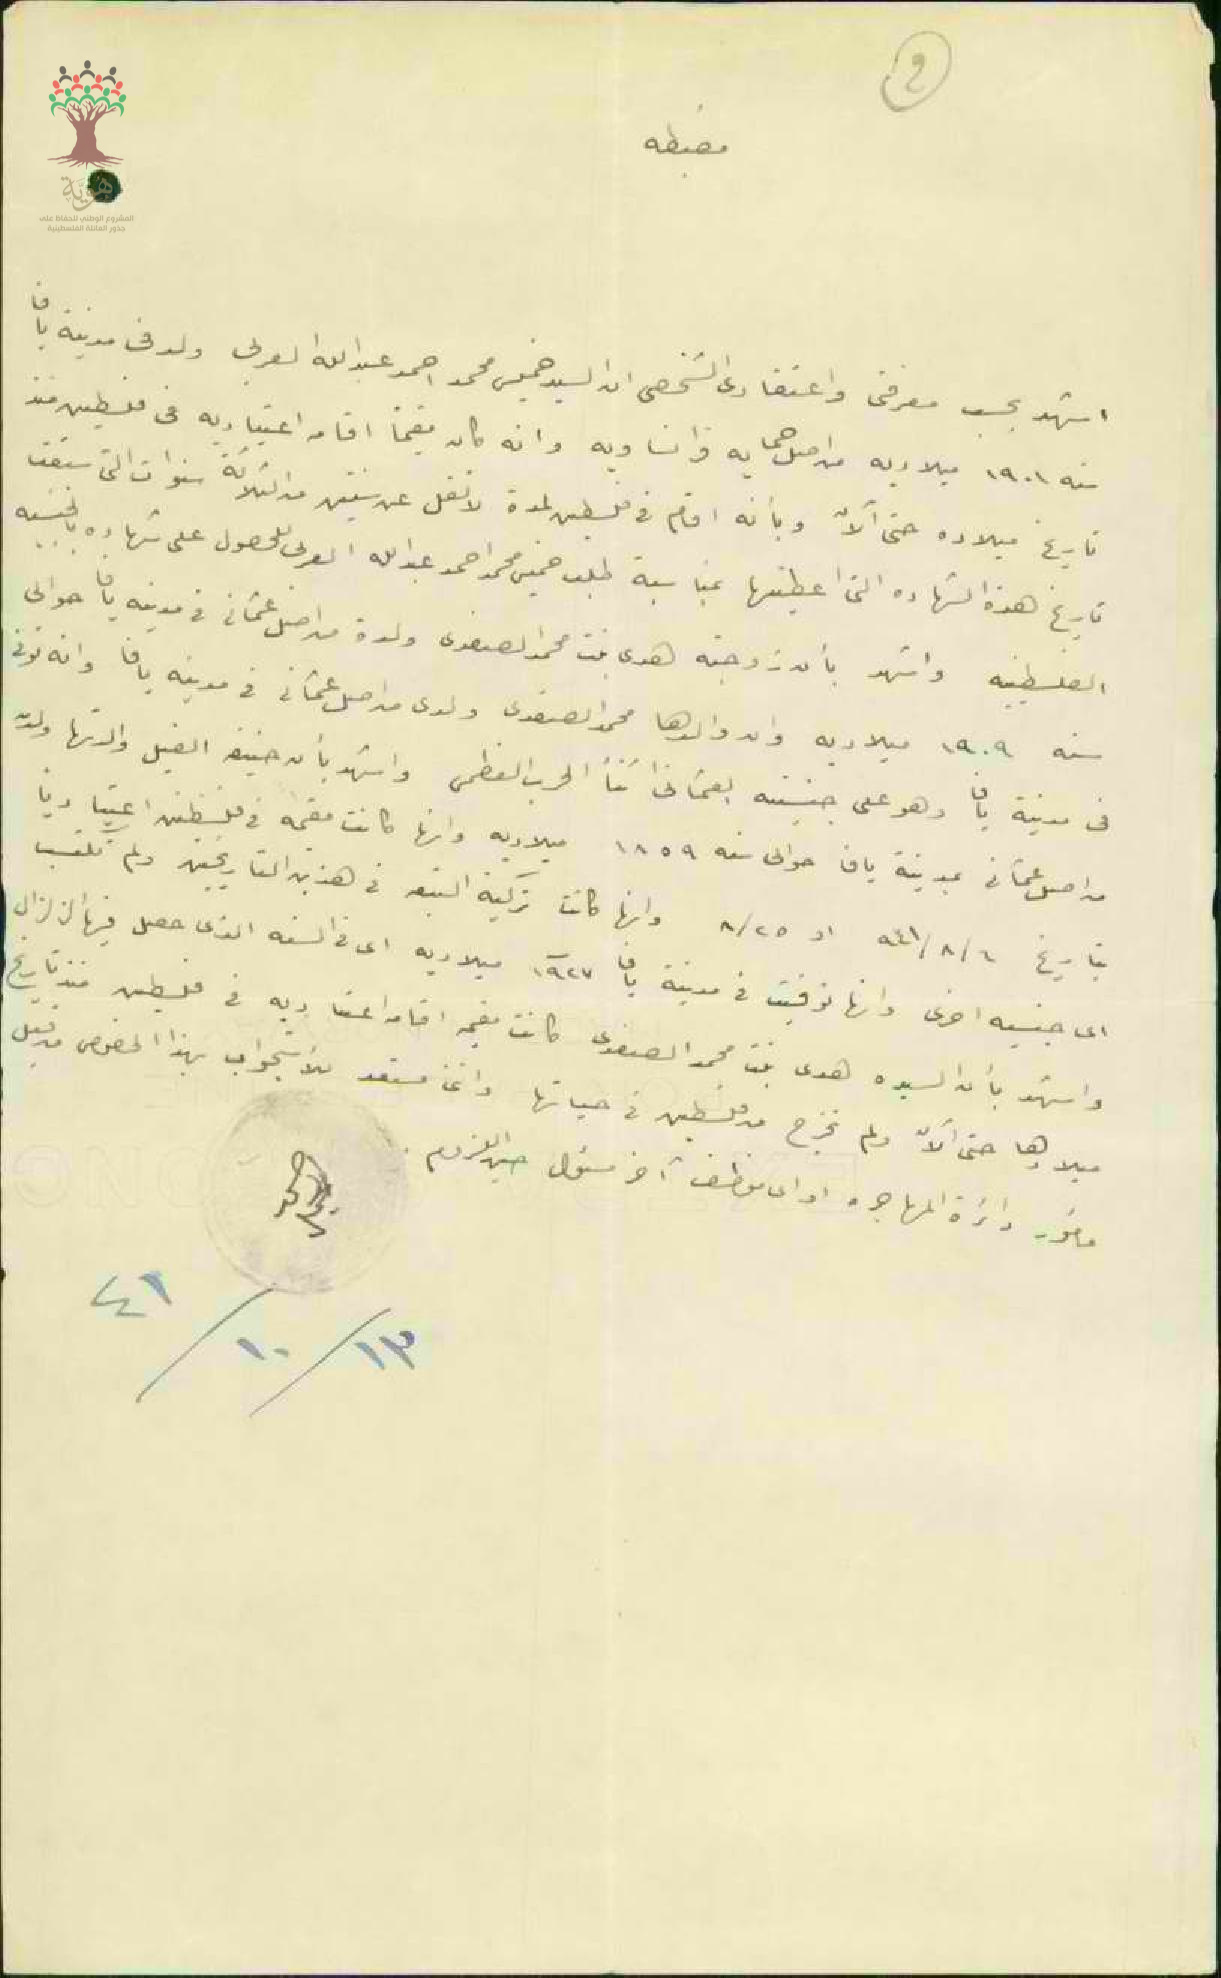 هوية
المشروع الوطني للحفاظ على
جذور العائلة الفلسطينية
مضبطه
اشهد بحسب معرفتي واعتقادي الشخصي ان السيد خميس محمد احمد عبدالله العربي ولد في مدينة يافا
سنه ١٩٠١ ميلاديه من اصل حمايه فرانساويه وانه كان مقيماً اقامه اعتياديه في فلسطين منذ
تاريخ ميلاده حتى الآن وبأنه اقام في فلسطين لمدة لا تقل عن سنتين من الثلاثة سنوات التي سبقت
تاريخ هذه الشهاده التي اعطيتها بمناسبة طلب خميس محمد احمد عبدالله العربي للحصول على شهاده بالجنسيه
الفلسطينيه واشهد بأن زوجته هدى بنت محمد الصفدي ولدة من اصل عثماني في مدينه يافا حوالي
سنه ١٩٠٩ ميلاديه وان والدها محمد الصفدي ولدى من اصل عثماني في مدينه يافا وانه توفى
في مدينة يافا وهو على جنسيته العثماني اثنأ الحرب العظمى واشهد بأن حنيفه الفيل والدتها ولدت
من اصل عثماني بمدينة يافا حوالي سنه ١٨٥٩ ميلاديه وانها كانت مقيمه في فلسطين اعتياديا
بتاريخ ٩٢٤/٨/٦ او ٨/٢٥ وانها كانت تركية التبعه في هذين التاريخين ولم تكتسب
اى جنسيه اخرى وانها توفيت في مدينة يافا ١٩٢٧ ميلاديه اى في السنه الذى حصل فيها الزلزال
واشهد بأن السيده هدى بنت محمد الصفدي كانت مقيمه اقامه اعتياديه في فلسطين منذ تاريخ
ميلادها حتى الآن ولم تخرج من فلسطين في حياتها وانني مستعد للأستجواب بهذا الخصوص من قبل
مأمور دائرة المهاجره او اى موظف آخر مسؤل حين اللزوم.
٤١/١٠/١٣